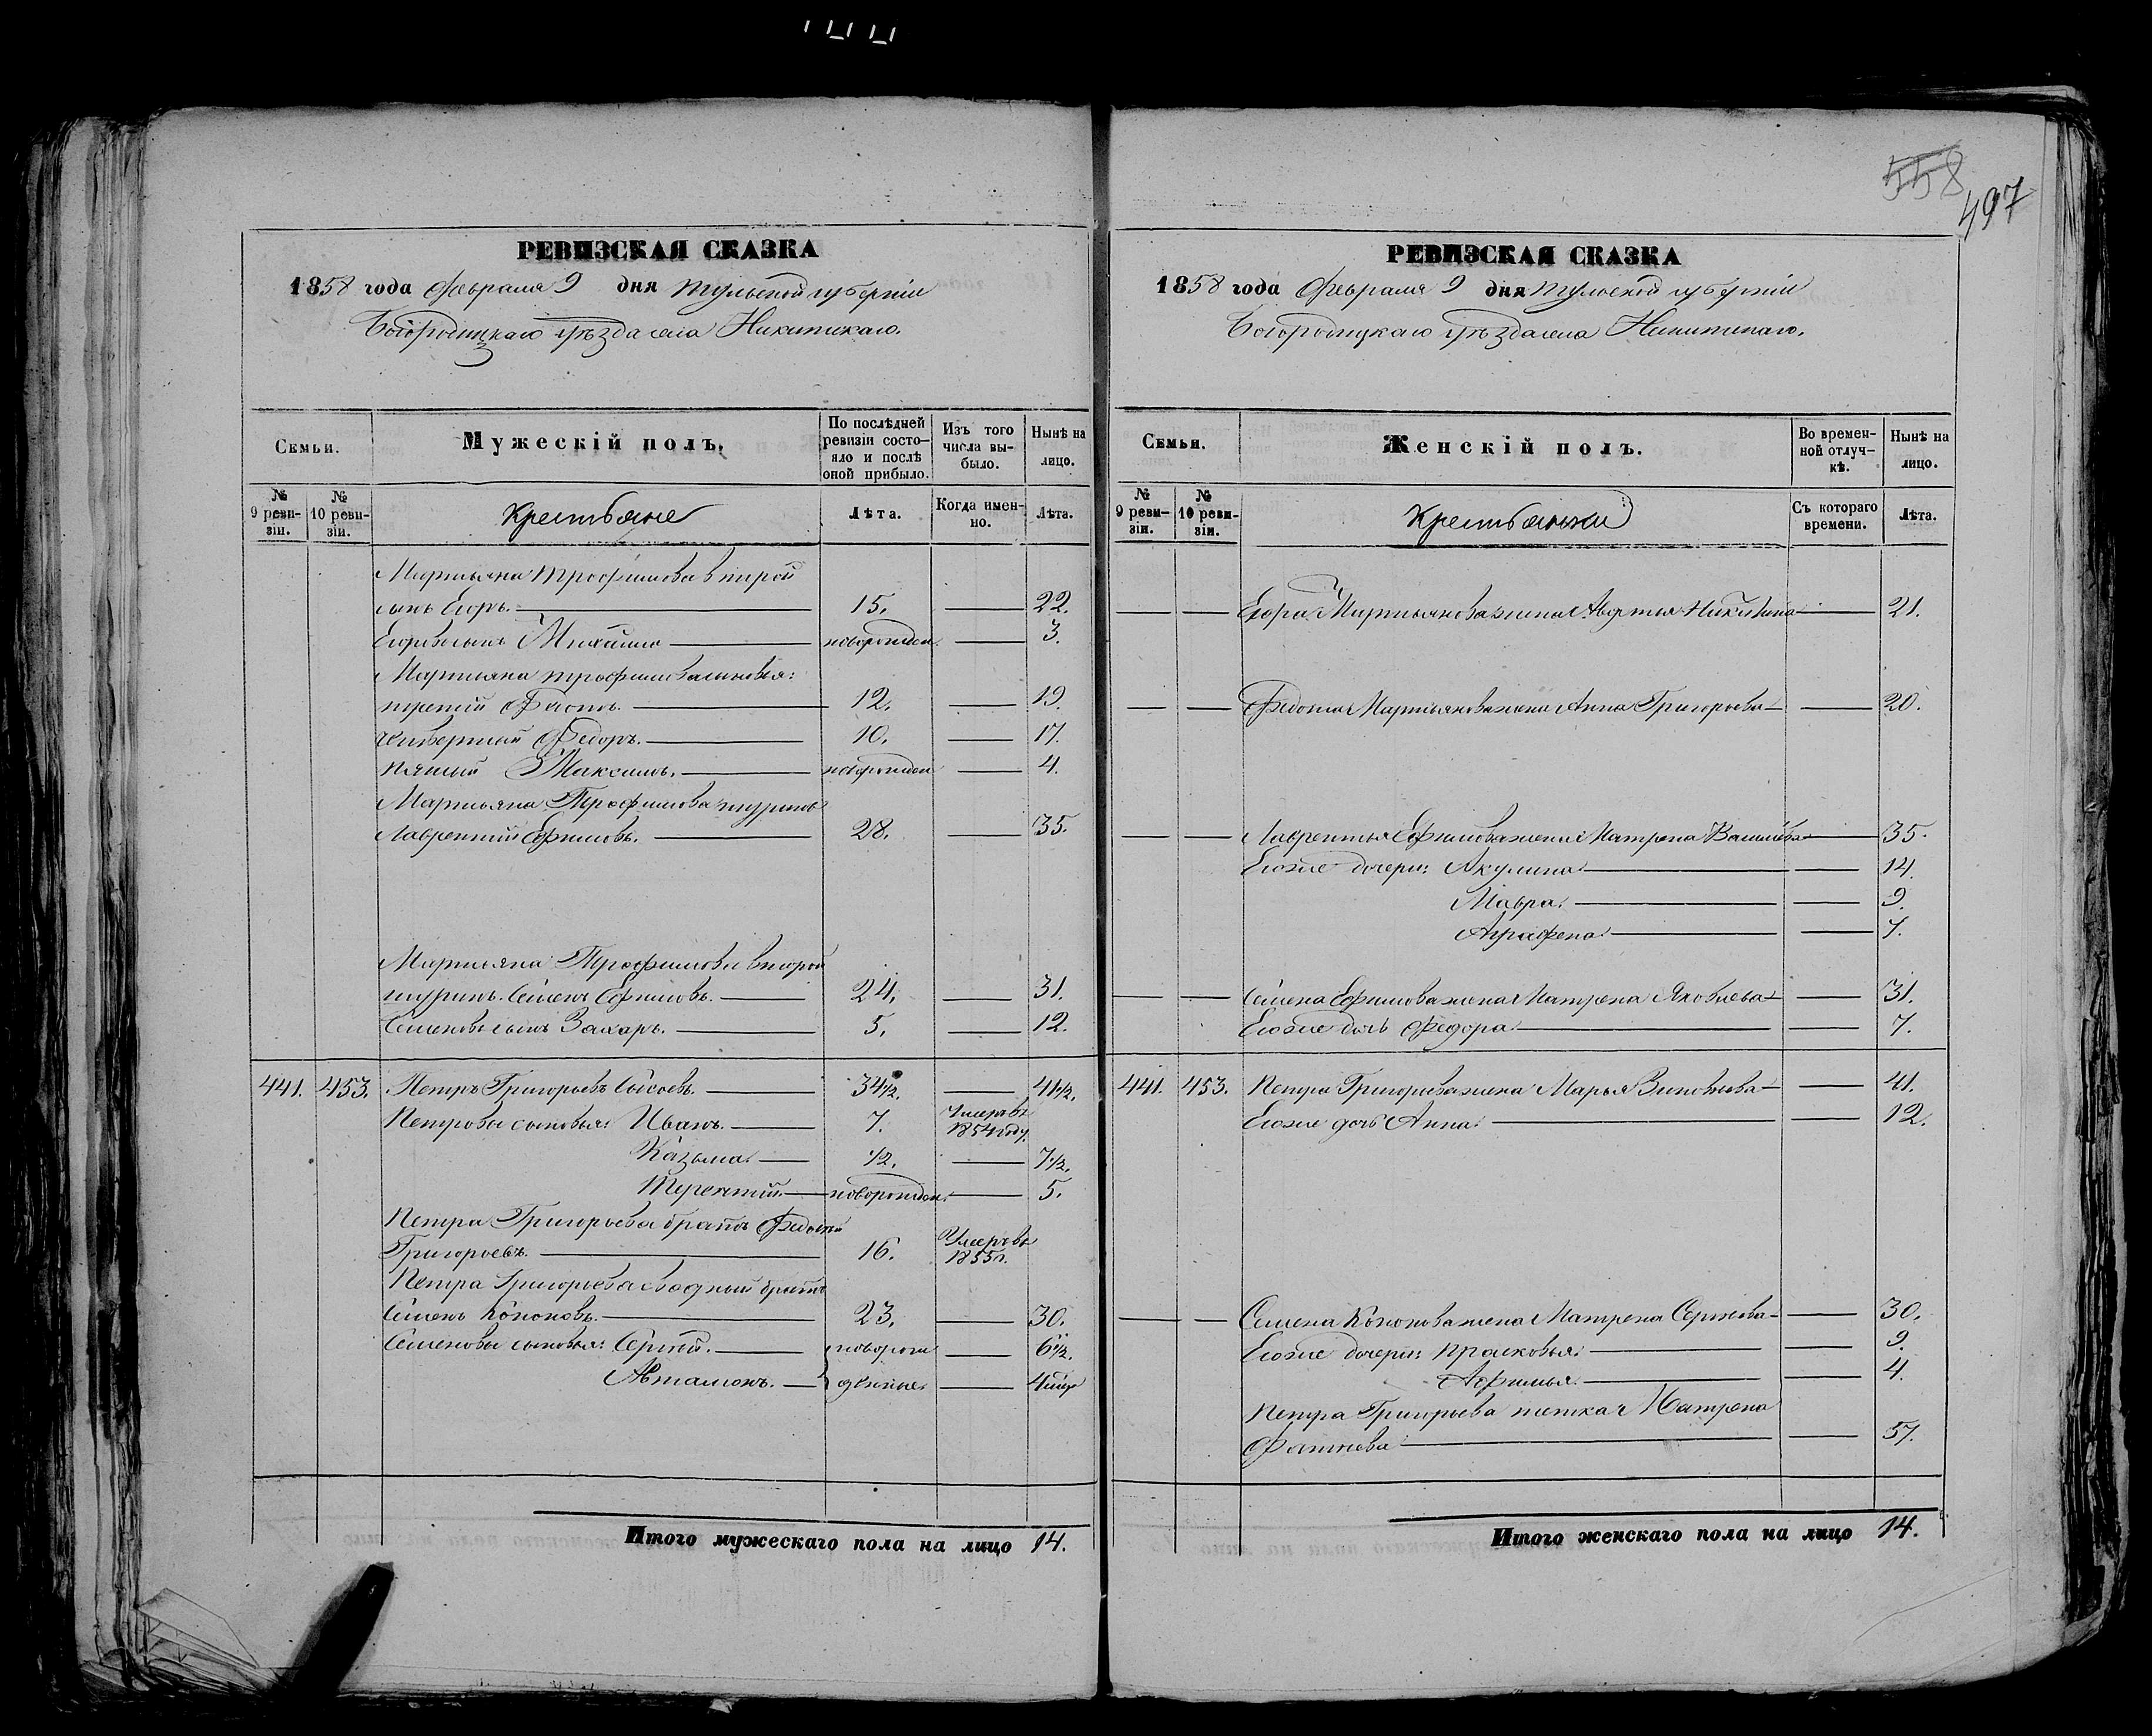 558
497
РЕВИЗСКАЯ СКАЗКА
1858 года Февраля 9 дня Тульской губерніи
Богородицкаго уѣзда села Никитскаго.
Семьи.
Мужескій полъ.
По послѣдней ревизіи состояло и послѣ оной прибыло.
Изъ того числа выбыло.
Нынѣ на лицо.
№ 9 ревизіи.
№ 10 ревизіи.
Крестьяне
Лѣта.
Когда именно.
Лѣта.
Мартьяна Трофимова второй
сынъ Егоръ. 15. 22.
Егоровъ сынъ Михайло новорожден. 3.
Мартьяна Трофимова сыновья:
третій Федотъ. 12. 19.
четвертый Федоръ. 10. 17.
пятый Максимъ. новорожден 4.
Мартьяна Трофимова шуринъ
Лаврентій Ефимовъ. 28. 35.
Мартьяна Трофимова второй
шуринъ Семенъ Ефимовъ. 24. 31.
Семеновъ сынъ Захаръ. 5. 12.
441. 453. Петръ Григорьевъ Сысоевъ. 34½. 41½.
Петровы сыновья: Иванъ. 7. Умеръ въ 1854 году.
Казьма. ½. 7½.
Терентій. новорожден. 5.
Петра Григорьева братъ Федосѣй
Григорьевъ. 16. Умеръ въ 1855 г.
Петра Григорьева сводный братъ
Семенъ Кононовъ. 23. 30.
Семеновы сыновья: Сергѣй. новорож 6½.
Автамонъ. денные 4
Итого мужескаго пола на лицо 14.
РЕВИЗСКАЯ СКАЗКА
1858 года Февраля 9 дня Тульской губерніи
Богородицкаго уѣзда села Никитскаго.
Семьи.
Женскій полъ.
Во временной отлучкѣ.
Нынѣ на лицо.
№ 9 ревизіи.
№ 10 ревизіи.
Крестьянки
Съ котораго времени.
Лѣта.
Егора Мартьянова жена Авдотья Никитина 21.
Федота Мартьянова жена Анна Григорьева 20.
Лаврентья Ефимова жена Матрена Васильева 35.
Егоже дочери: Акулина 14.
Мавра. 9.
Аграфена 7.
Семена Ефимова жена Матрена Яковлева 31.
Егоже дочь Федора 7.
441. 453. Петра Григорьева жена Марья Зиновьева 41.
Егоже дочь Анна. 12.
Семена Кононова жена Матрена Сергѣева 30.
Егоже дочери: Прасковья. 9.
Афимья. 4.
Петра Григорьева тетка Матрена
57.
Итого женскаго пола на лицо 14.